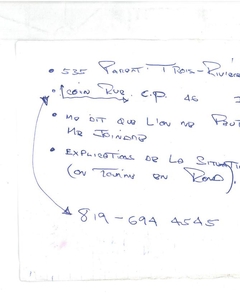 • 535 Parent. Trois-Riviè
• Coin Rue. C.P. 46
• Me dit que l'on ne peut
me joindre
• Explications de la situati
(on tourne en rond).
819-694 4545